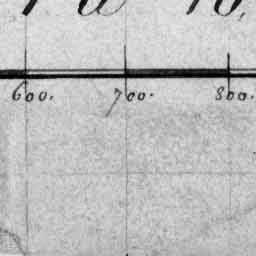 600. 700. 800.